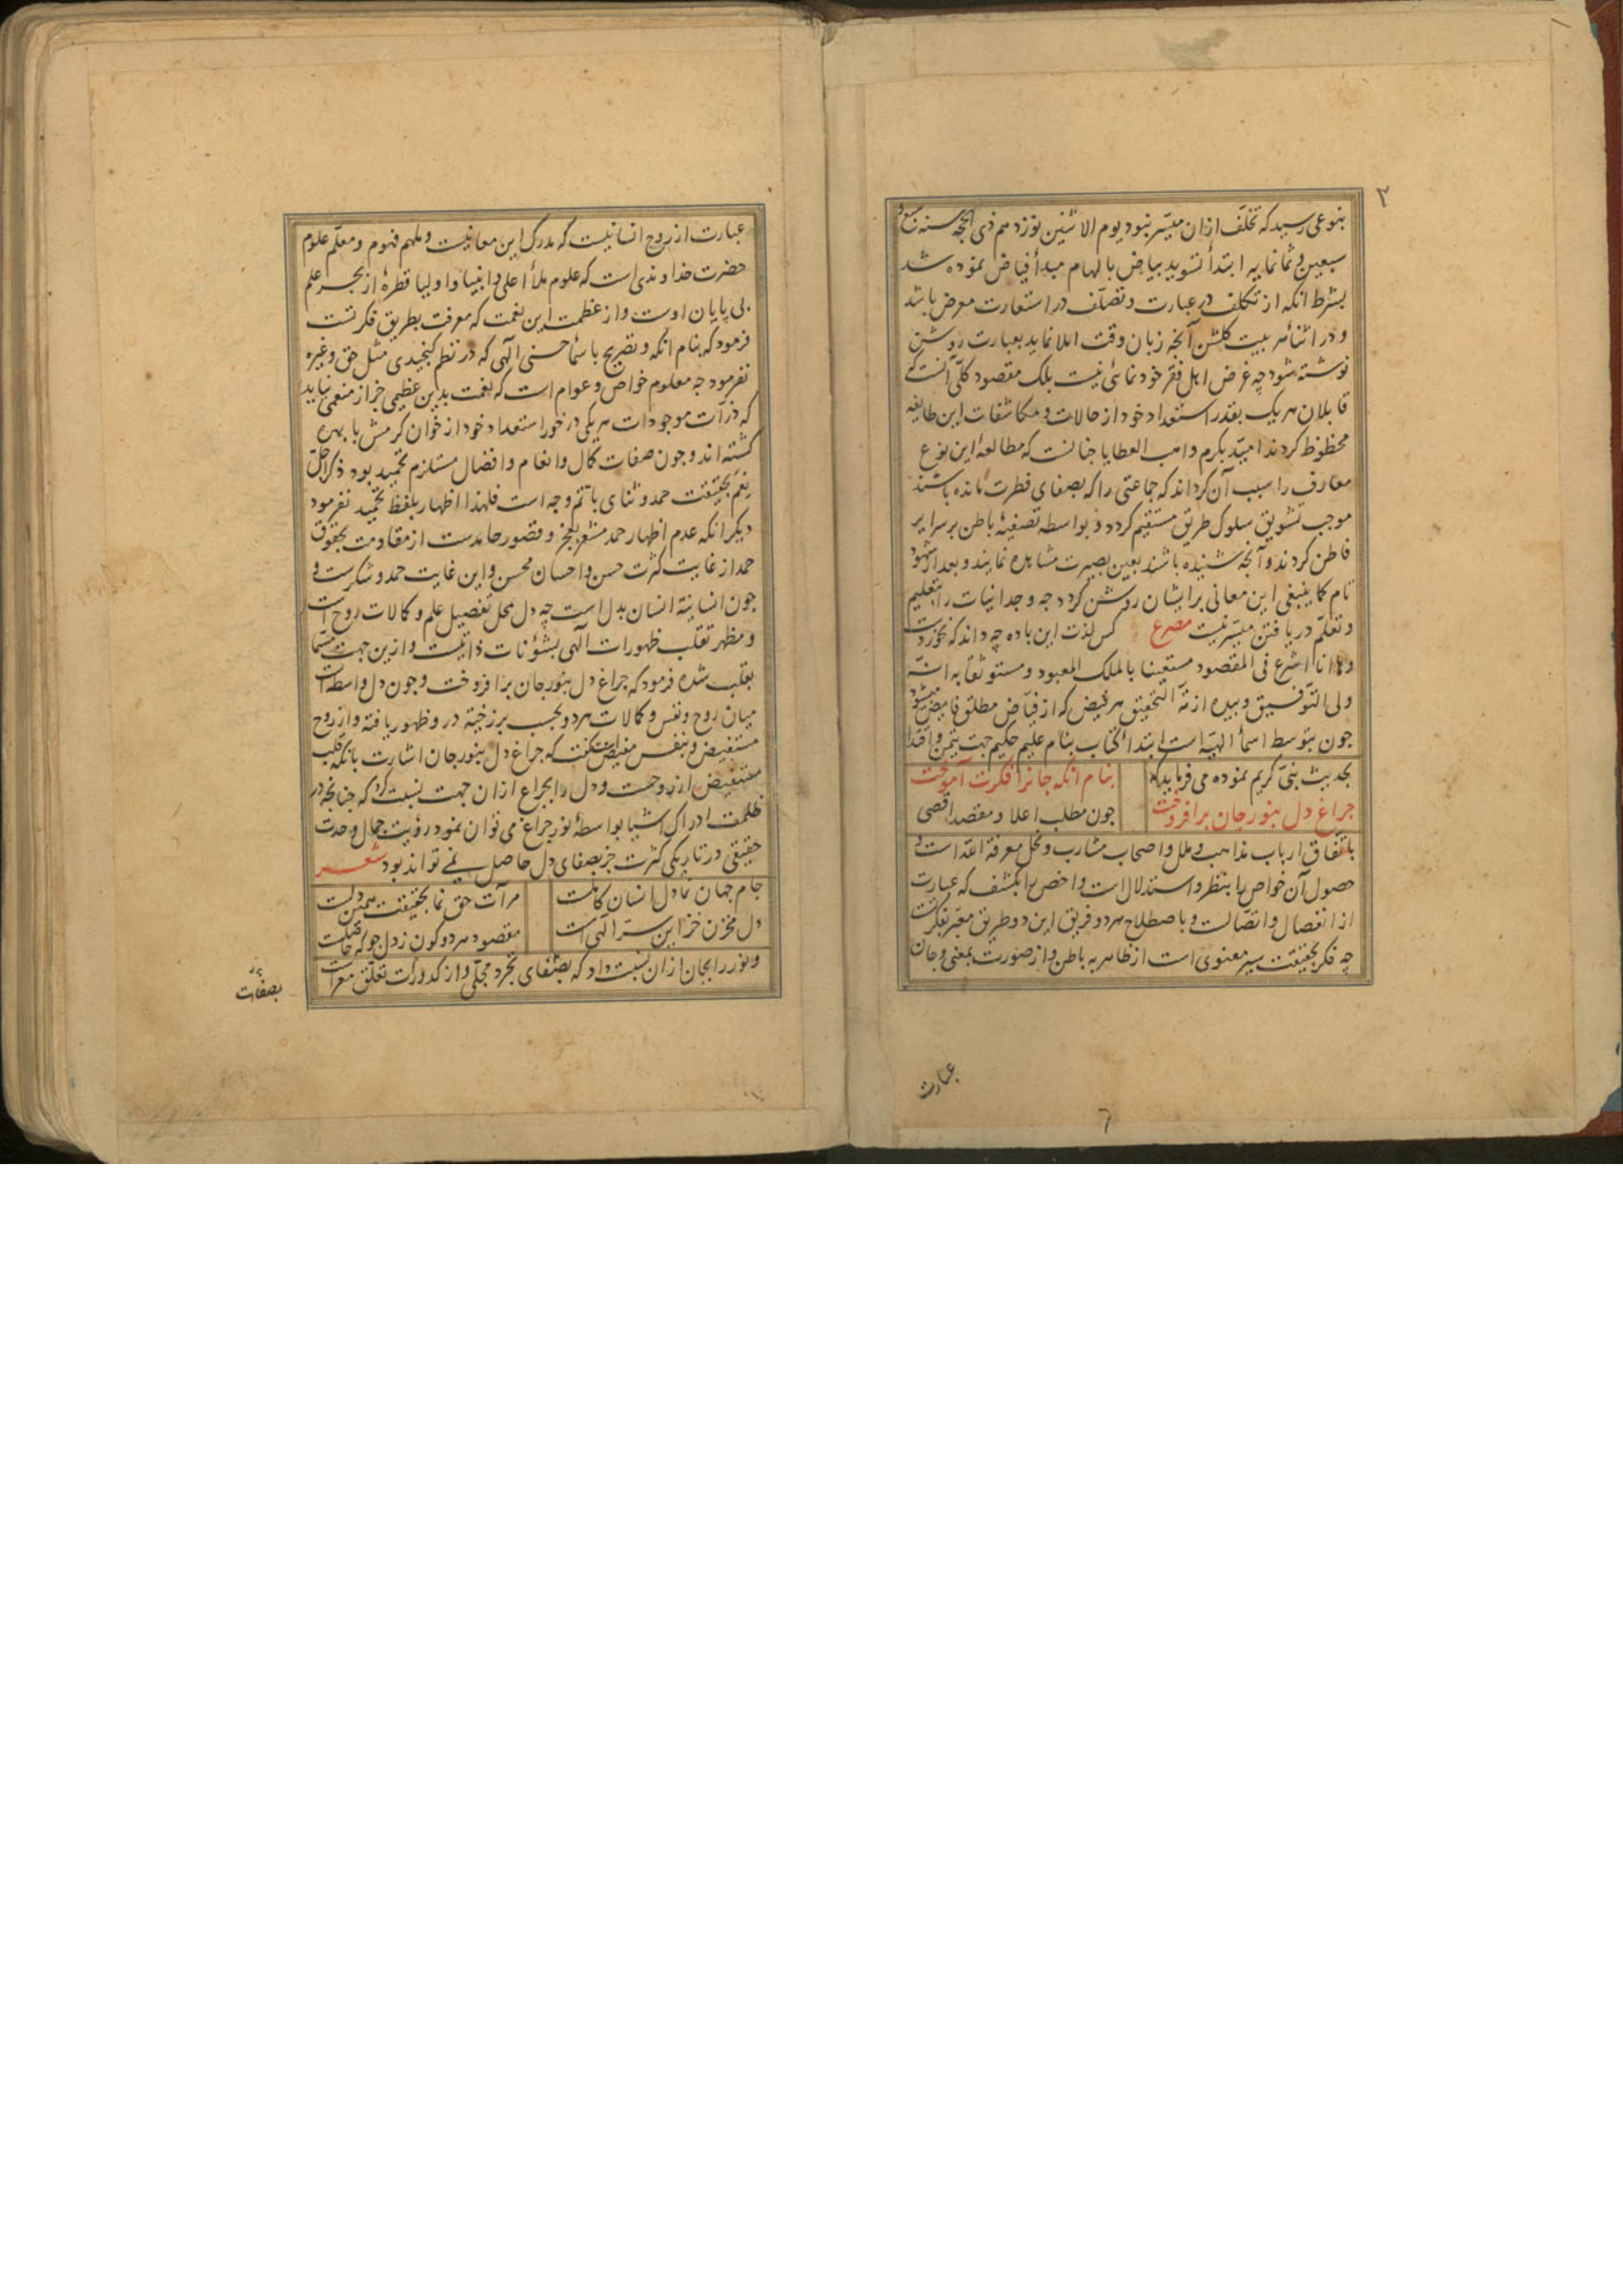 ٢
بنوعی رسید که تخلف ازان میسر نبود یوم الاثنین نوزدهم ذی الحجه سنه سبع و
سبعین و ثمانمایه ابتدأ تسوید بیاض بالهام مبدأ فیاض نموده شد
بشرط انکه از تکلف در عبارت و تصلف در استعارت معرض باشد
و در اثناء هر بیت کلشن آنچه زبان وقت املا نماید بعبارت روشن
نوشته شود چه غرض اهل فقر خود نمائی نیست بلک مقصود کلی آنست که
قابلان هر یک بقدر استعداد خود از حالات و مکاشفات این طایفه
محظوظ کردند امید بکرم واهب العطایا چنانست که مطالعهٔ این نوع
معارف را سبب آن کرداند که جماعتی را که بصفای فطرت مانده باشند
موجب تشویق سلوک طریق مستقیم کردد و بواسطه تصفیهٔ باطن بر سرایر
فاطن کردند و آنچه شنیده باشند بعین بصیرت مشاهده نمایند و بعد از شهود
تام کما ینبغی این معانی بر ایشان روشن کردد چه وجدانیات را بتعلیم
و تعلم دریافتن میسر نیست مصرع کس لذت این باده چه داند که نخوردست
وها انا اشرع فی المقصود مستعینا بالملک المعبود و مستوثقا به انه
ولی التوفیق و بیده ازمة التحقیق هر فیض که از فیاض مطلق فایض میشود
چون بتوسط اسمأ الهیه است ابتدأ کتاب بنام علیم حکیم جهت تیمن و اقتدا
بحدیث نبی کریم نموده می فرماید که بنام انکه جانرا فکرت آموخت
چراغ دل بنور جان برافروخت چون مطلب اعلا و مقصد اقصی
باتفاق ارباب مذاهب و ملل و اصحاب مشارب و نحل معرفة الله است و
حصول آن خواص را بنظر و استدلال است و اخص را بکشف که عبارت
از انفصال و اتصالست و باصطلاح هر دو فریق این دو طریق معبر بفکرتست
چه فکر بحقیقت سیر معنوی است از ظاهر به باطن و از صورت بمعنی و جان
عبارت
عبارت از روح انسانیست که مدرک این معانیست و ملهم فهوم و معلم علوم
حضرت خداوندی است که علوم ملأ اعلی و انبیا و اولیا قطرهٔ از بحر علم
بی پایان اوست و از عظمت این نعمت که معرفت بطریق فکرتست
فرمود که بنام انکه و تصریح باسمأ حسنی الهی که در نظم کنجیدی مثل حق و غیره
نفرمود چه معلوم خواص و عوام است که نعمت بدین عظیمی جز از منعمی نیاید
که ذرات موجودات هر یکی در خور استعداد خود از خوان کرمش با بهره
کشته اند و چون صفات کمال و انعام و افضال مستلزم تحمید بود ذکر اجل
نعم بحقیقت حمد و ثنای باتم وجه است فلهذا اظهار بلفظ تحمید نفرمود
دیکر انکه عدم اظهار حمد مشعر بعجز و قصور حامدست از مقاومت بحقوق
حمد از غایت کثرت حسن و احسان محسن و این غایت حمد و شکرست و
چون انسانیة انسان بدل است چه دل محل تفصیل علم و کمالات روح است
و مظهر تقلب ظهورات الهی بشئونات ذاتیست و ازین جهت مسما
بقلب شده فرمود که چراغ دل بنور جان برافروخت و چون دل واسطه است
میان روح و نفس و کمالات هر دو بحسب برزخیة در و ظهور یافته و از روح
مستفیض و بنفس مفیض است کفت که چراغ دل بنور جان اشارت بانکه قلب
مستفیض از روحست و دل را بچراغ ازان جهت نسبت کرد که چنانچه در
ظلمت ادراک اشیا بواسطهٔ نور چراغ می توان نمود رؤیت جمال وحدت
حقیقی در تاریکی کثرت جز بصفای دل حاصل نمی تواند بود شعر
جام جهان نما دل انسان کاملست مرآت حق نما بحقیقت همین دلست
دل مخزن خزاین سر الهی است مقصود هر دو کون ز دل جو که حاصلست
و نور را بجان ازان نسبت داد که بصفای تجرد مجلی و از کدورت تعلق معراست
بصفات